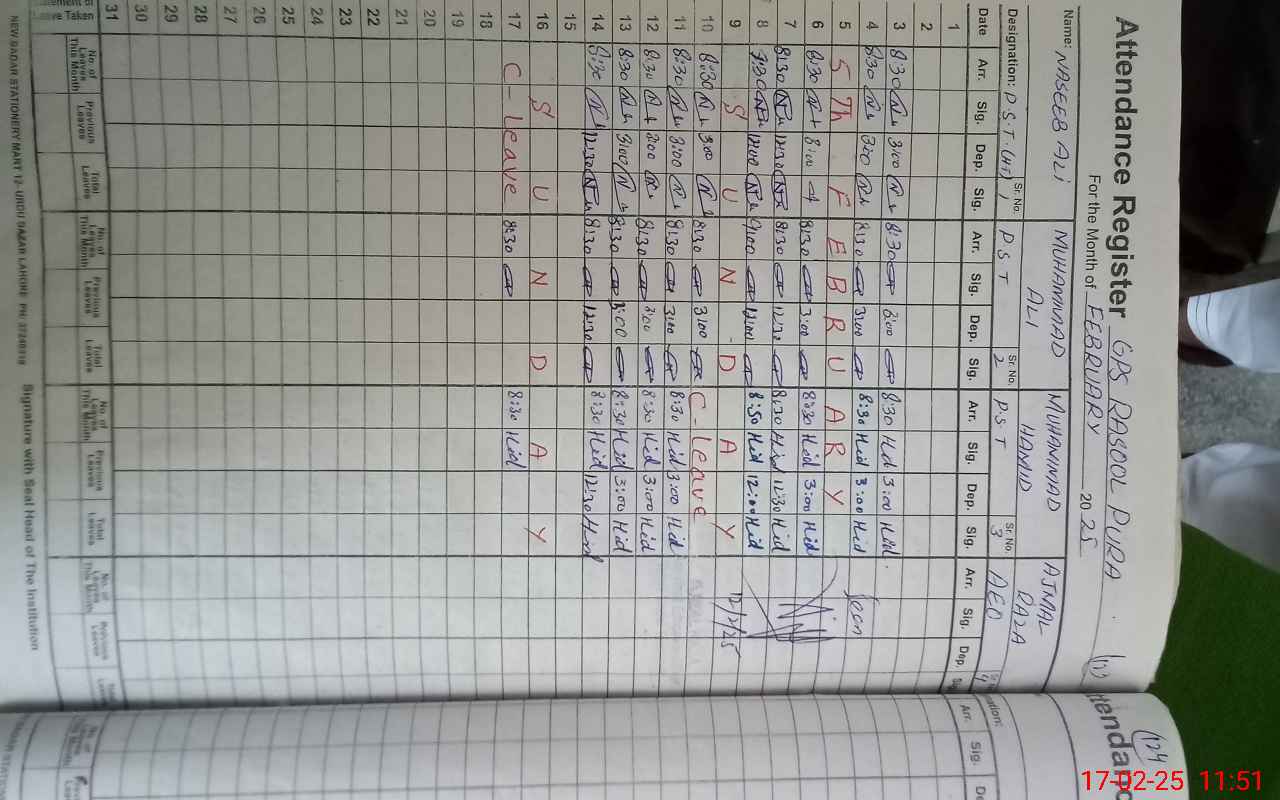 Attendance Register GPS RASOOL PURA
For the Month of FEBRUARY 2025
Name: NASEEB ALI MUHAMMAD ALI MUHAMMAD HAMID AJMAL RAZA
Designation: P.S.T.(HT) Sr. No. 1 P S T Sr. No. 2 P S T Sr. No. 3 AEO 4
Date Arr. Sig. Dep. Sig. Arr. Sig. Dep. Sig. Arr. Sig. Dep. Sig. Arr. Sig. Dep.
1
2
3 8:30 3:00 8:30 3:00 8:30 Hid 3:00 Hid
4 8:30 3:00 8:30 3:00 8:30 Hid 3:00 Hid Seen
5 5 Th F E B R U A R Y
6 8:30 3:00 8:30 3:00 8:30 Hid 3:00 Hid
7 8:30 12:30 8:30 12:30 8:30 Hid 12:30 Hid
8 12:00 9:00 12:00 8:50 Hid 12:00 Hid
9 S U N D A Y 12/2/25
10 8:30 3:00 8:30 3:00 C - leave
11 8:30 3:00 8:30 3:00 8:30 Hid 3:00 Hid
12 8:30 3:00 8:30 3:00 8:30 Hid 3:00 Hid
13 8:30 3:00 8:30 3:00 8:30 Hid 3:00 Hid
14 8:30 12:30 8:30 12:30 8:30 Hid 12:30 Hid
15
16 S U N D A Y
17 C - leave 8:30 8:30 Hid
18
19
20
21
22
23
24
25
26
27
28
29
30
31
Leave Taken No. of Leaves This Month Previous Leaves Total Leaves No. of Leaves This Month Previous Leaves Total Leaves No. of Leaves This Month Previous Leaves Total Leaves No. of Leaves This Month Previous Leaves
NEW QADAR STATIONERY MART 12- URDU BAZAR LAHORE PH: 37240318 Signature with Seal Head of The Institution
124
Arr. Sig.
17-02-25 11:51